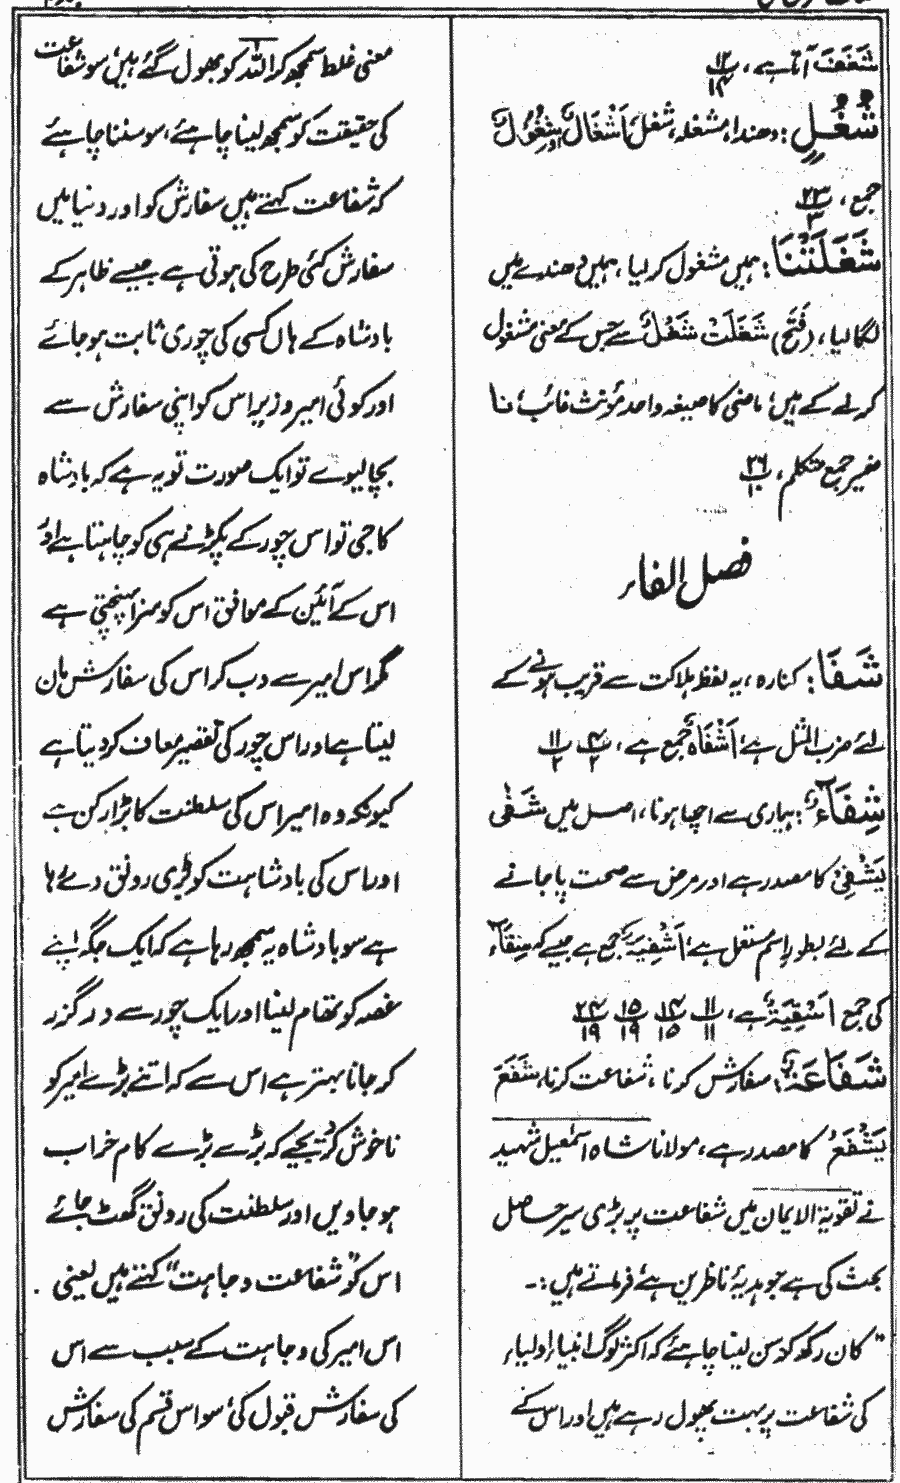 شَغَفَ آتا ہے، ۱۲/۱۴
شُغُلٍ: دھندا، مشغلہ، شغل، اَشْغَالٌ اور شُغُوْلٌ
جمع، ۲۳/۳
شَغَلَتْنَا: ہمیں مشغول کر لیا، ہمیں دھندے میں
لگا لیا، (فَتَحَ) شَغَلَتْ شَغْلٌ سے جس کے معنی مشغول
کر لے کے ہیں، ماضی کا صیغہ واحد مؤنث غائب، نا
ضمیر جمع متکلم، ۲۶/۱۰
فصل الفاء
شَفَا: کنارہ، یہ لفظ ہلاکت سے قریب ہونے کے
لئے ضرب المثل ہے، اَشْفَاءٌ جمع ہے، ۴/۲ ۱۱/۲
شِفَآءٌ: بیماری سے اچھا ہونا، اصل میں شَفٰی
یَشْفِیْ کا مصدر ہے اور مرض سے صحت پا جانے
کے لئے بطور اسم مستعمل ہے، اَشْفِیَۃٌ جمع ہے جیسے کہ سِقَآءٌ
کی جمع اَسْقِیَۃٌ ہے، ۱۱/۱۱ ۱۴/۱۵ ۱۵/۱۹ ۲۴/۱۹
شَفَاعَۃٌ: سفارش کرنا، شفاعت کرنا، شَفَعَ
یَشْفَعُ کا مصدر ہے، مولانا شاہ اسمٰعیل شہید
نے تقویۃ الایمان میں شفاعت پر بڑی سیر حاصل
بحث کی ہے جو ہدیۂ ناظرین ہے، فرماتے ہیں:-
"کان رکھ کر سن لینا چاہئے کہ اکثر لوگ انبیاء، اولیاء
کی شفاعت پر بہت پھول رہے ہیں اور اس کے
معنی غلط سمجھ کر اللہ کو بھول گئے ہیں، سو شفاعت
کی حقیقت کو سمجھ لینا چاہئے، سو سننا چاہئے
کہ شفاعت کہتے ہیں سفارش کو اور دنیا میں
سفارش کئی طرح کی ہوتی ہے جیسے ظاہر کے
بادشاہ کے ہاں کسی کی چوری ثابت ہو جائے
اور کوئی امیر وزیر اس کو اپنی سفارش سے
بچا لیوے تو ایک صورت تو یہ ہے کہ بادشاہ
کا جی تو اس چور کے پکڑنے ہی کو چاہتا ہے اور
اس کے آئین کے موافق اس کو سزا پہنچتی ہے
مگر اس امیر سے دب کر اس کی سفارش مان
لیتا ہے اور اس چور کی تقصیر معاف کر دیتا ہے
کیونکہ وہ امیر اس کی سلطنت کا بڑا رکن ہے
اور اس کی بادشاہت کو بڑی رونق دے رہا
ہے سو بادشاہ یہ سمجھ رہا ہے کہ ایک جگہ اپنے
غصہ کو تھام لینا اور ایک چور سے در گزر
کر جانا بہتر ہے اس سے کہ اتنے بڑے امیر کو
ناخوش کر دیجئے کہ بڑے بڑے کام خراب
ہو جاویں اور سلطنت کی رونق گھٹ جائے
اس کو "شفاعت وجاہت" کہتے ہیں یعنی
اس امیر کی وجاہت کے سبب سے اس
کی سفارش قبول کی، سو اس قسم کی سفارش